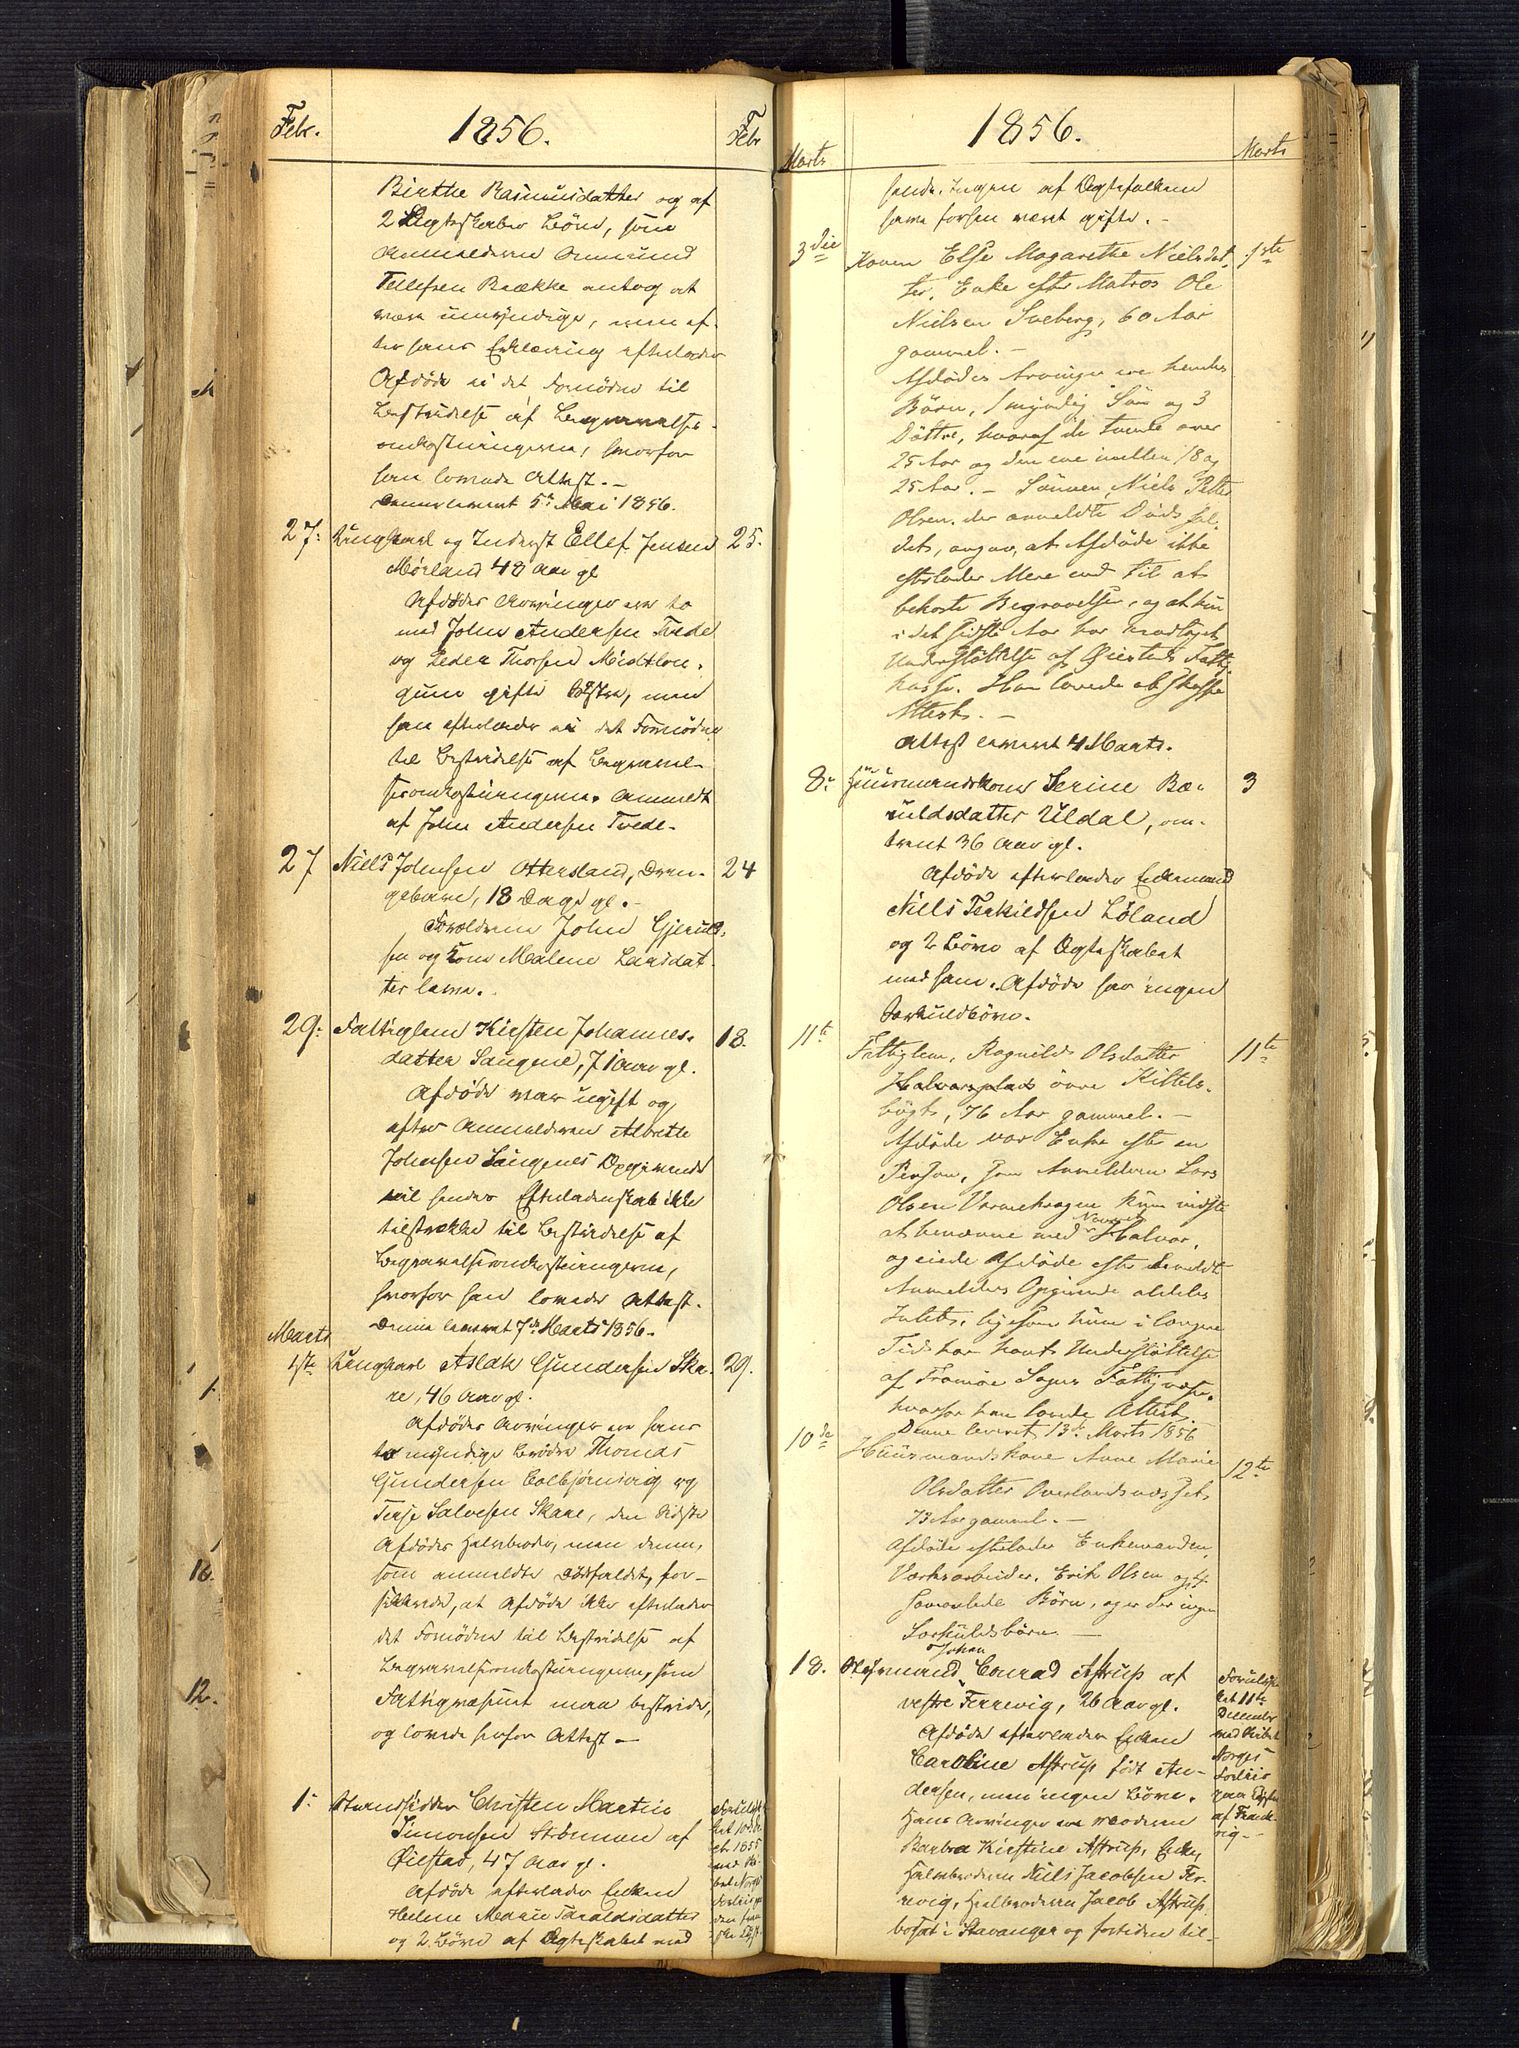 Febr. 1856. Febr
Birthe Rasmusdatter og af
2 Ægteskaber Børn, som
Anmelderen Aamund
Tellefsen Brække antog at
være umyndige, men ef-
ter hans Erklæring efterlader
Afdøde ei det Fornødne til
Bestridelse af Begravelses-
omkostningerne, hvorfor
han lovede Attest. –
Denne leveret 5te Mai 1856.
27: Ungkarl og Inderst Ellef Jensen 25.
Mørland 48 Aar gl
Afdødes Arvinger ere to
med John Andersen Tvede
og Peder Thorsen Midtlon-
gum gifte Søstre, men
han efterlader ei det Fornødne
til Bestridelse af Begravel-
sesomkostningerne. Anmeldt
af John Andersen Tvede.
27 Niels Johnsen Ottersland, Dren- 24
gebarn, 18 Dage gl. –
Forældrene John Gjeruld-
sen og Kone Malene Larsdat-
ter leve.
29: Fattiglem Kirsten Johannes- 18.
datter Saugene, 71 Aar gl.
Afdøde var ugift og
efter Anmelderen Albrette
Johnsen Saugenes Opgivende
vil hendes Efterladenskab ikke
tilstrække til Bestridelse af
Begravelsesomkostningerne,
hvorfor han lovede Attest.
Marts Denne leveret 7de Marts 1856.
1ste Ungkarl Aslak Gundersen Ska- 29.
re, 46 Aar gl.
Afdødes Arvinger ere hans
to myndige Brødre Thomas
Gundersen Colbjørnsvig og
Terje Salvesen Skare, den Sidste
Afdødes Halvbroder, men denne,
som anmeldte Dødsfaldet, for-
sikkrede, at Afdøde ikke efterlader
det Fornødne til Bestridelse af
Begravelsesomkostningerne, som
Fattigvæsenet maa bestride,
og lovede herfor Attest –
1: Strandsidder Christen Martin
Simonsen Strømmen af
Øiestad, 47 Aar gl.
Afdøde efterlader Enken
Helene Marie Taraldsdatter
og 2 Børn af Ægteskabet med
Marts 1856. Marts
hende. Ingen af Ægtefolkene
have forhen været gifte. –
3die Konen Else Magarethe Nielsdat- 1ste
ter, Enke efter Matros Ole
Nielsen Sveberg, 60 Aar
gammel. –
Afdødes Arvinger ere hendes
Børn, 1 myndig Søn og 3
Døttre, hvoraf de tvende over
25 Aar og den ene imellem 18 og
25 Aar. – Sønnen, Niels Petter
Olsen, der anmeldte Dødsfal-
det, angav, at Afdøde ikke
efterlader Mere end til at
bekoste Begravelsen, og at hun
i det sidste Aar har modtaget
Understøttelse af Øiestads Fattig-
kasse. Han lovede at skaffe
Attest. –
Attest leveret 4 Marts.
8: Huusmandskone Serine Bæ- 3
ruldsdatter Uldal, om-
trent 36 Aar gl.
Afdøde efterlader Enkemand
Niels Terkildsen Løland
og 2 Børn af Ægteskabet
med ham. Afdøde har ingen
Særkuldbørn.
11te Fattiglem, Ragnild Olsdatter 11te
Halvorsplads øvre Kittels-
bugt, 76 Aar gammel. –
Afdøde var Enke efter en
Person, som Anmelderen Lars
Olsen Varmekragen kun vidste
at benævne med Navnet Halvor,
og eiede Afdøde efter bemeldte
Anmelders Opgivende aldeles
Intet, ligesom hun i længere
Tid har havt Understøttelse
af Tromøe Sogns Fattigvæsen,
hvorfor han lovede Attest.
Denne leveret 13de Marts 1856
10de Huusmandskone Anne Marie 12te
Olsdatter Overlandsnæsset,
73 Aar gammel. –
Afdøde efterlader Enkemanden,
Værksarbeider, Erik Olsen og
sammenlede Børn, og er der ingen
Særkuldsbørn. –
18. Styrmand Johan Conrad Astrup af
vestre Terrevig, 26 Aar gl.
Afdøde efterlader Enken
Caroline Astrup født An-
dersen, men ingen Børn.
Hans Arvinger ere Moderen
Barbra Kirstine Astrup, Enke,
Halvbroderen Niels Jacobsen Ter-
revig, Helbroderen Jacob Astrup,
bosat i Stavanger og fortiden til-
Forulykket
11te
December
med Skibet
Norges
Forliis
paa Reisen
af Frank-
rig. –